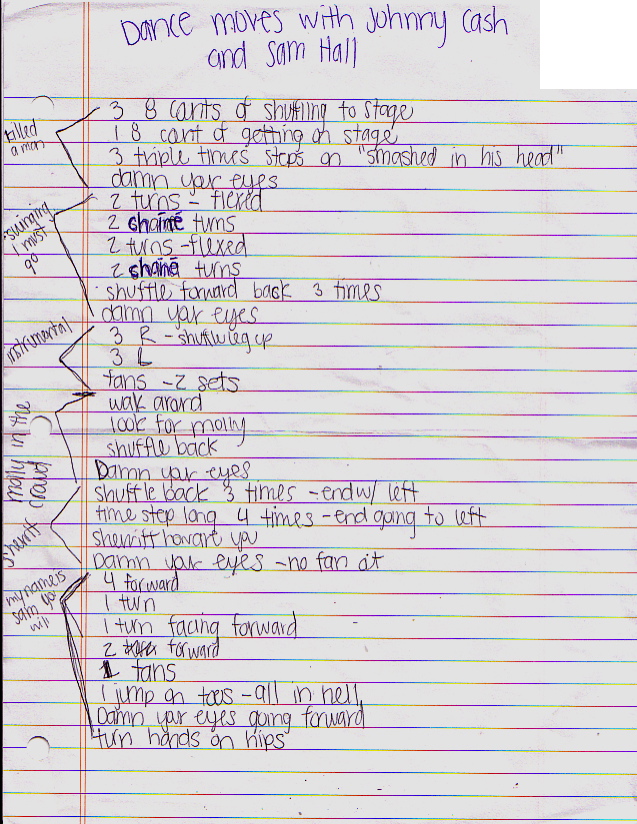 Dance moves with Johnny Cash
and Sam Hall
killed
a man
3 8 counts of shuffling to stage
1 8 count of getting on stage
3 triple times steps on "smashed in his head"
damn your eyes
swinging
I must
go
2 turns - flexed
2 chainé turns
2 turns - flexed
2 chainé turns
shuffle forward back 3 times
damn your eyes
instrumental
3 R - shuffle leg up
3 L
fans - 2 sets
molly in the
crowd
walk around
look for molly
shuffle back
Damn your eyes
sheriff
shuffle back 3 times - end w/ left
time step long 4 times - end going to left
sherriff how are you
Damn your eyes - no fan out
my name is
sam
will
4 forward
1 turn
1 turn facing forward
2 forward
1 fans
1 jump on toes - all in hell
Damn your eyes going forward
turn hands on hips